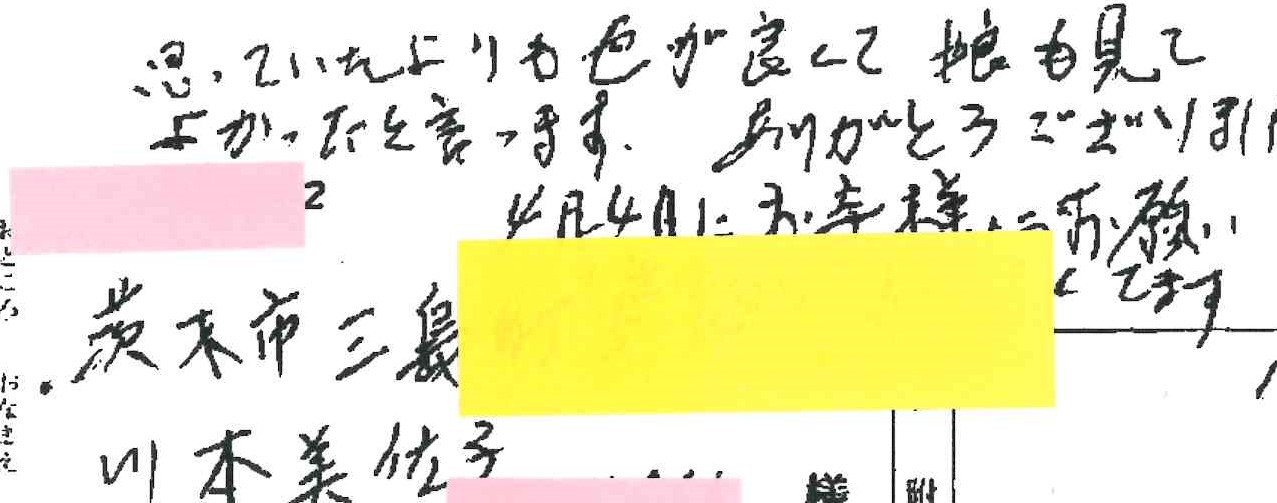 思っていたよりも色が良くて 娘も見て
よかったと言ってます. ありがとうございまし
2
4月4日にお寺様にお願い
してます
茨木市三島
川本美佐子
様
附
おところ
おなまえ